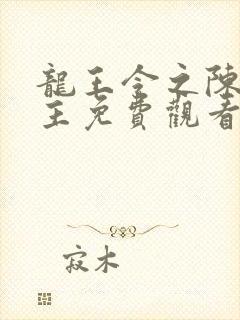 龍王令之陳
王免費觀看
寂木